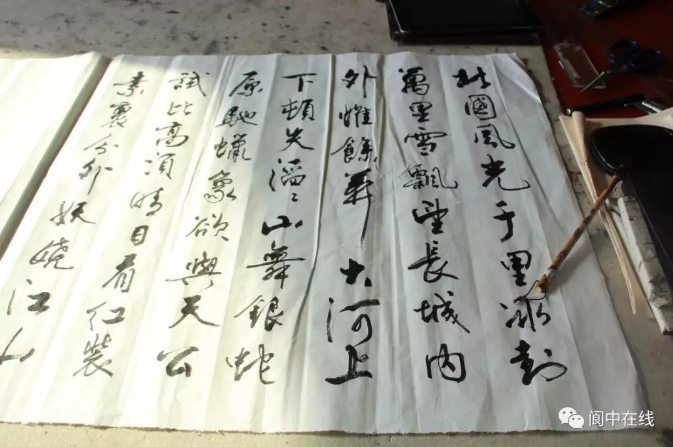 北國風光千里冰封
萬里雪飄望長城內
外惟餘莽大河上
下頓失滔〻山舞銀蛇
原馳蠟象欲與天公
試比高須晴日看紅裝
素裹分外妖嬈江山
阆中在线